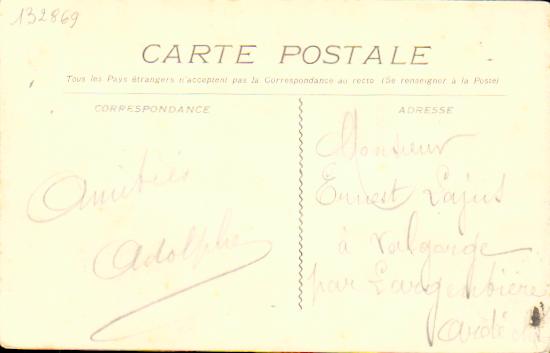 132869
CARTE POSTALE
Tous les Pays étrangers n'acceptent pas la Correspondance au recto (Se renseigner à la Poste)
CORRESPONDANCE
ADRESSE
Amitiés
Adolphe
Monsieur
Ernest Lajus
à Valgorge
par Largentière
Ardèche